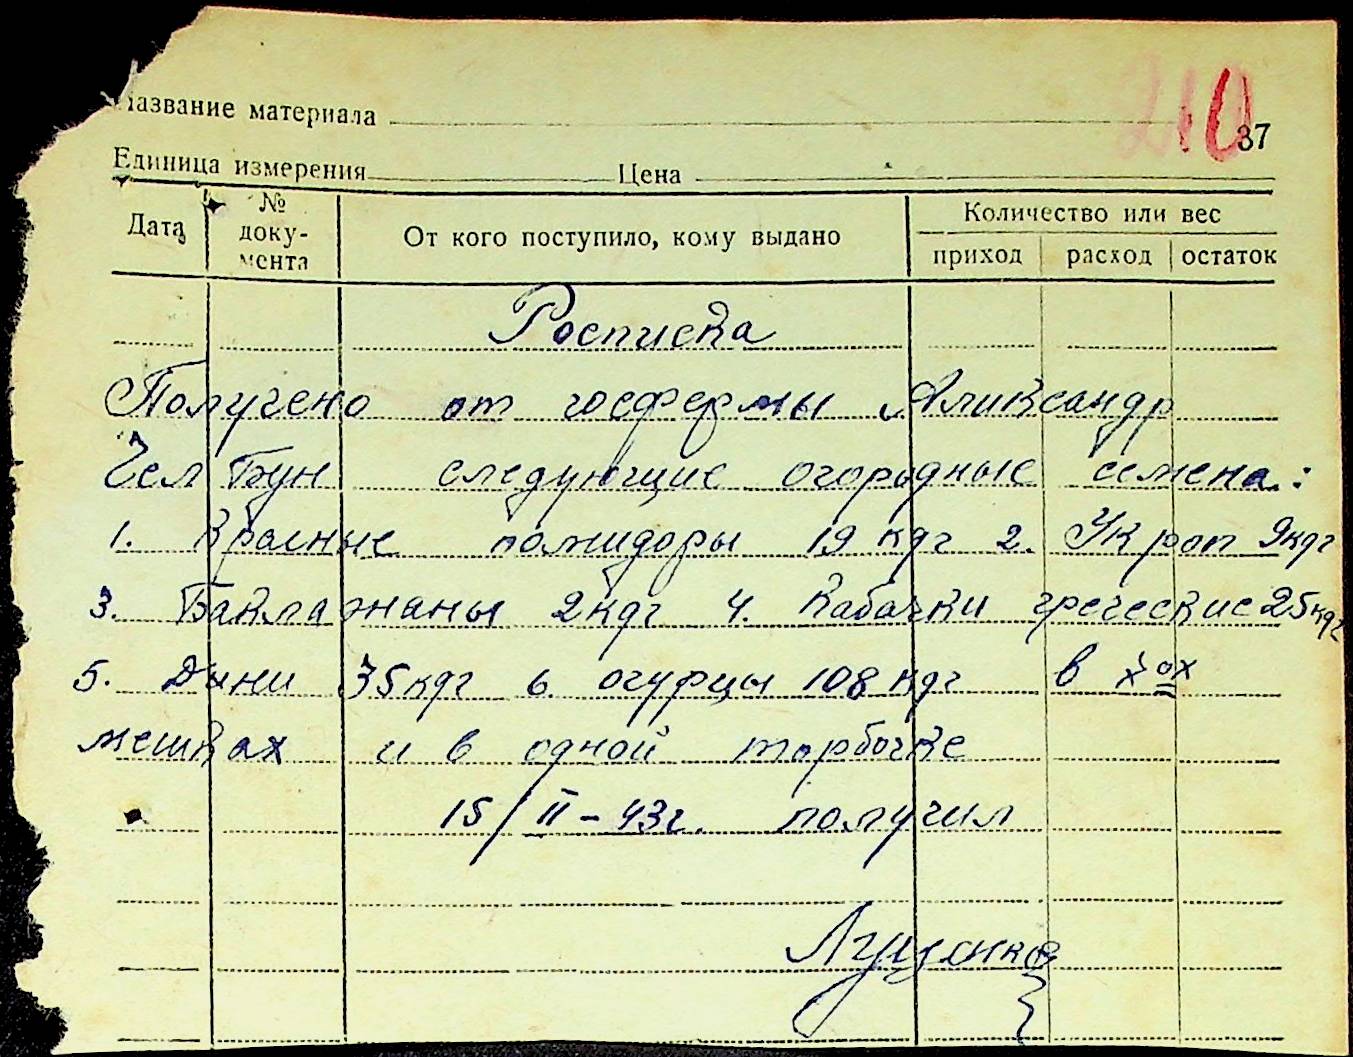 210
87
Название материала
Единица измерения Цена
Дата № доку-мента От кого поступило, кому выдано Количество или вес
приход расход остаток
Росписка
Получено от госфермы Аликсандр
Чел Бун следующие огородные семена:
1. Красные помидоры 19 кдг 2. Укроп 9кдг
3. Баклажаны 2кдг 4. Кабачки греческие 25кдг
5. Дыни 35кдг 6. огурцы 108 кдг в 3ох
мешках и в одной торбочке
15/II-43г. получил